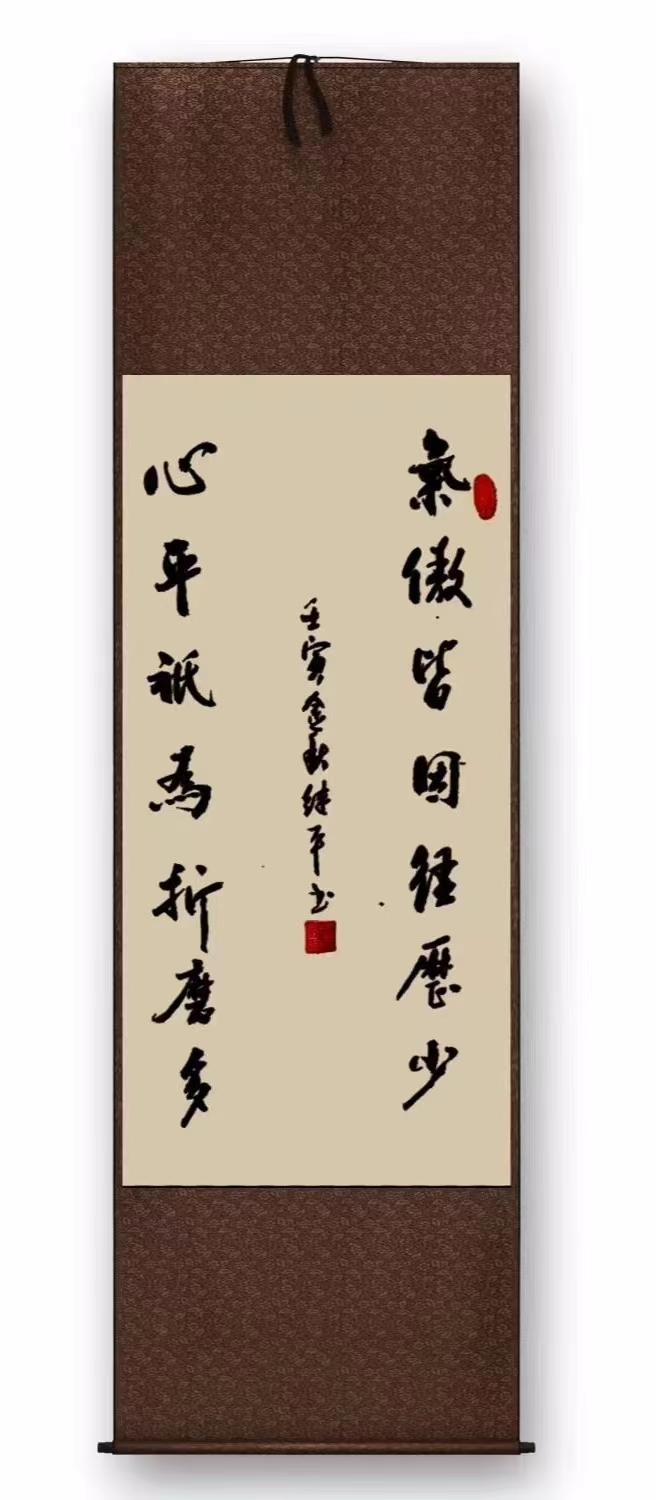 氣傲皆因经歷少
心平祇為折磨多
壬寅金秋继平书